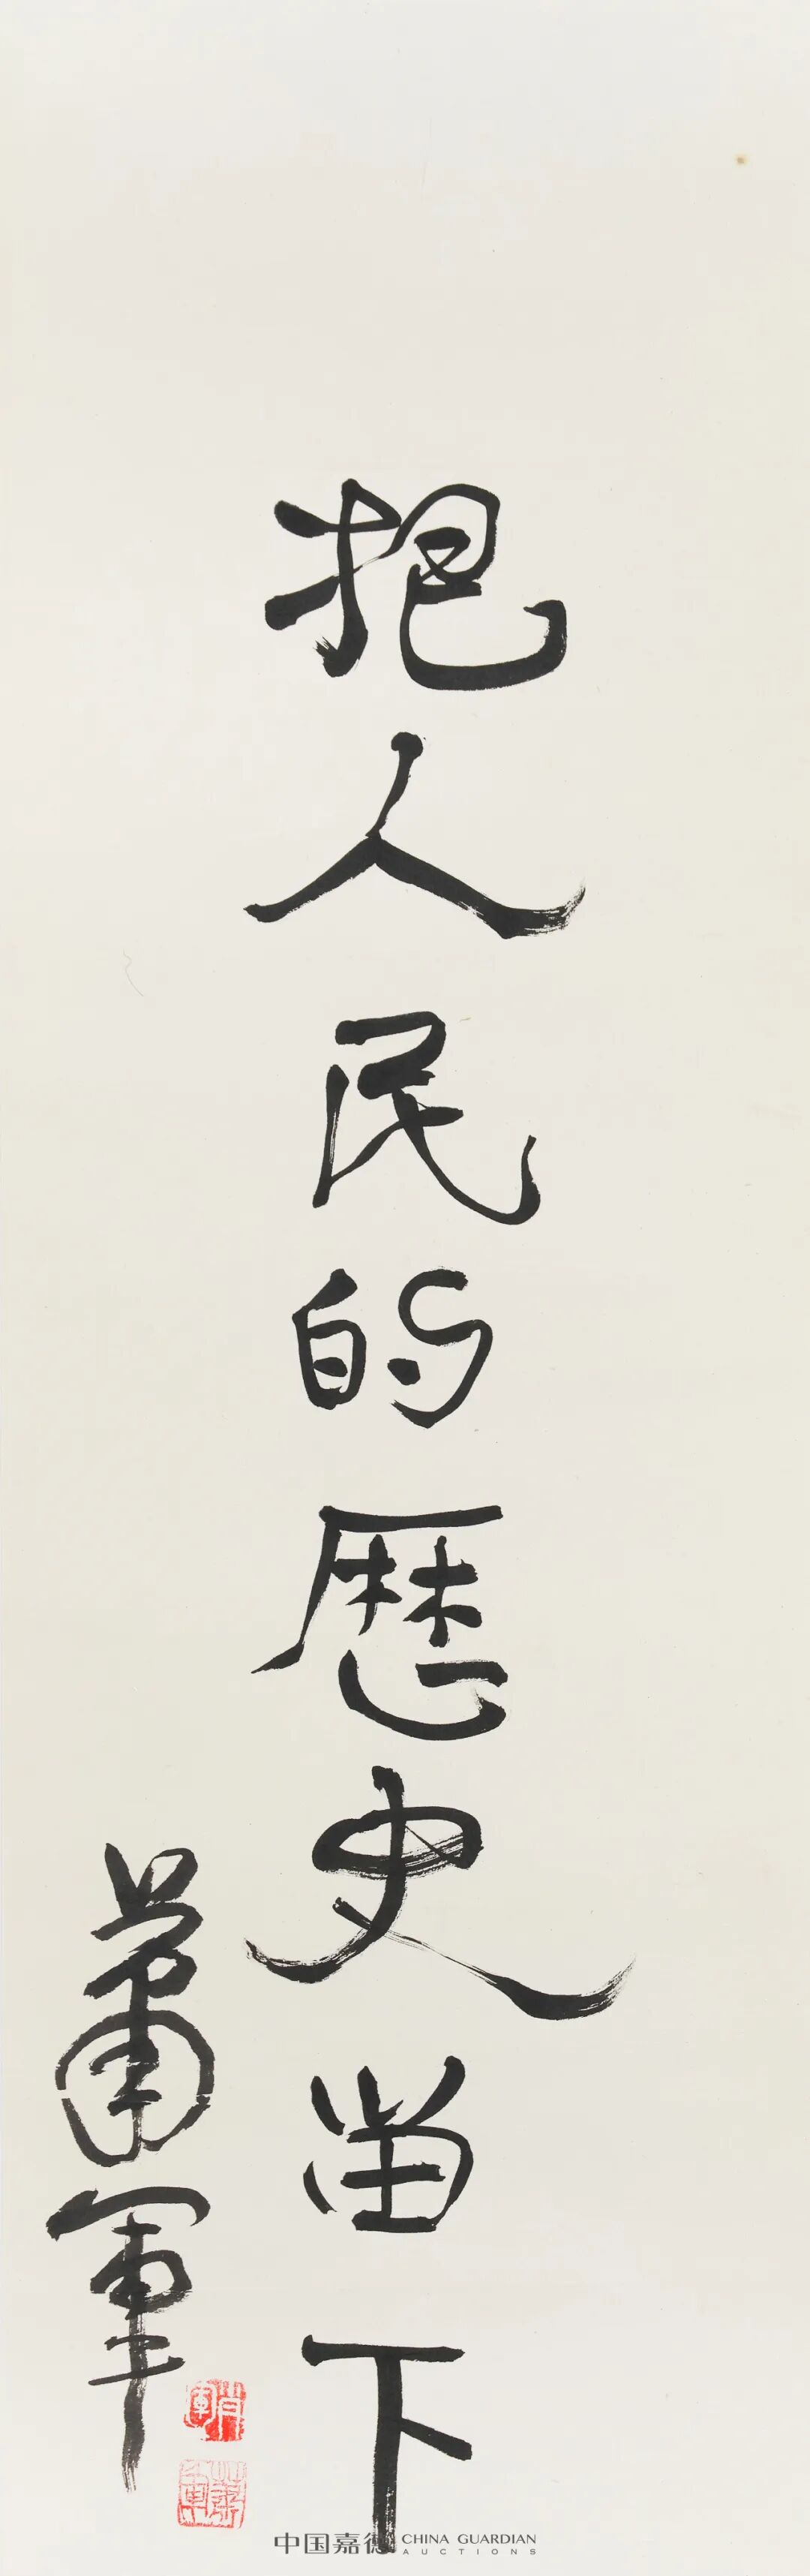 把人民的歷史留下
蕭軍
肖軍
蕭軍
中国嘉德 CHINA GUARDIAN
AUCTIONS